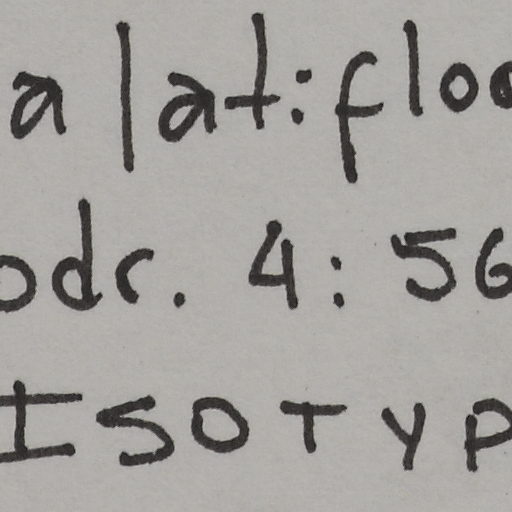 a latifloo
odr. 4: 56
ISOTYP